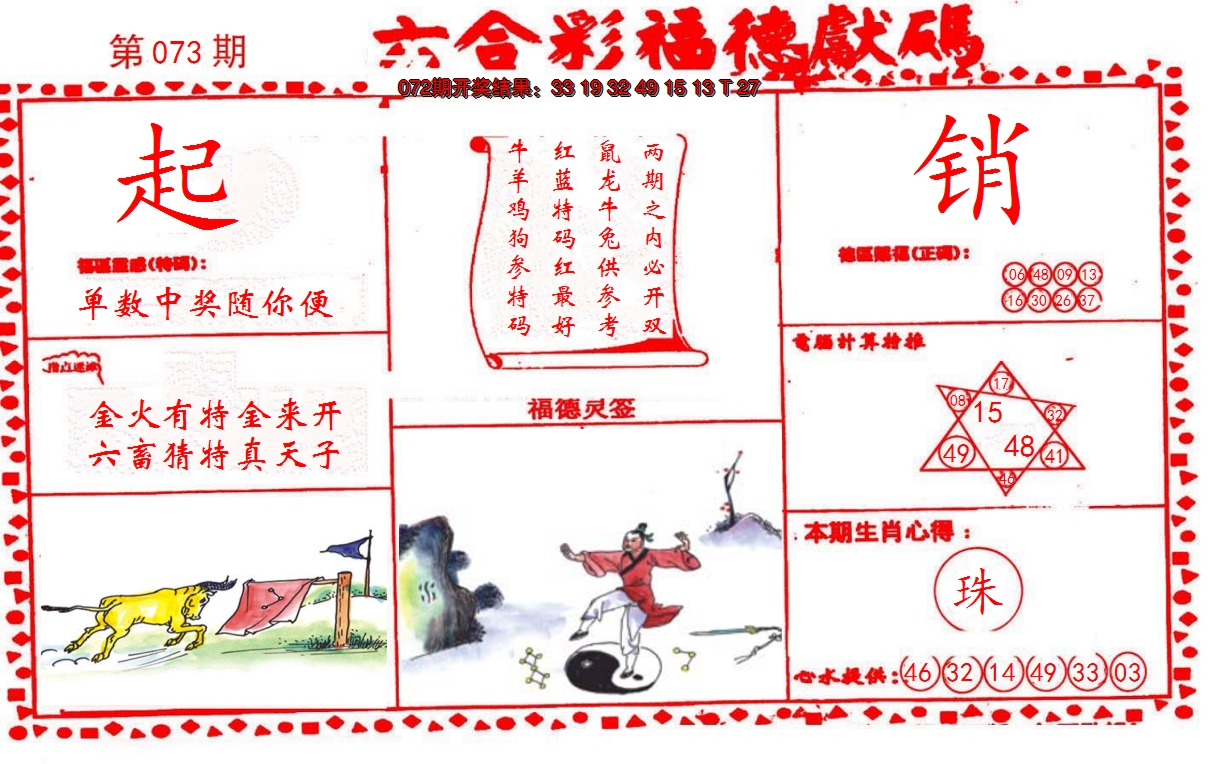 第 073 期
六合彩福德獻碼
072期开奖结果：33 19 32 49 15 13 T 27
起
福區靈感(特碼)：
单数中奖随你便
指点迷津
金火有特金来开
六畜猜特真天子
两期之内必开双
鼠龙牛兔供参考
红蓝特码红最好
牛羊鸡狗参特码
福德灵签
销
德區賜福(正碼)：
06 48 09 13
16 30 26 37
電腦计算推
17
08 15 32
49 48 41
46
本期生肖心得：
珠
心水提供：46 32 14 49 33 03